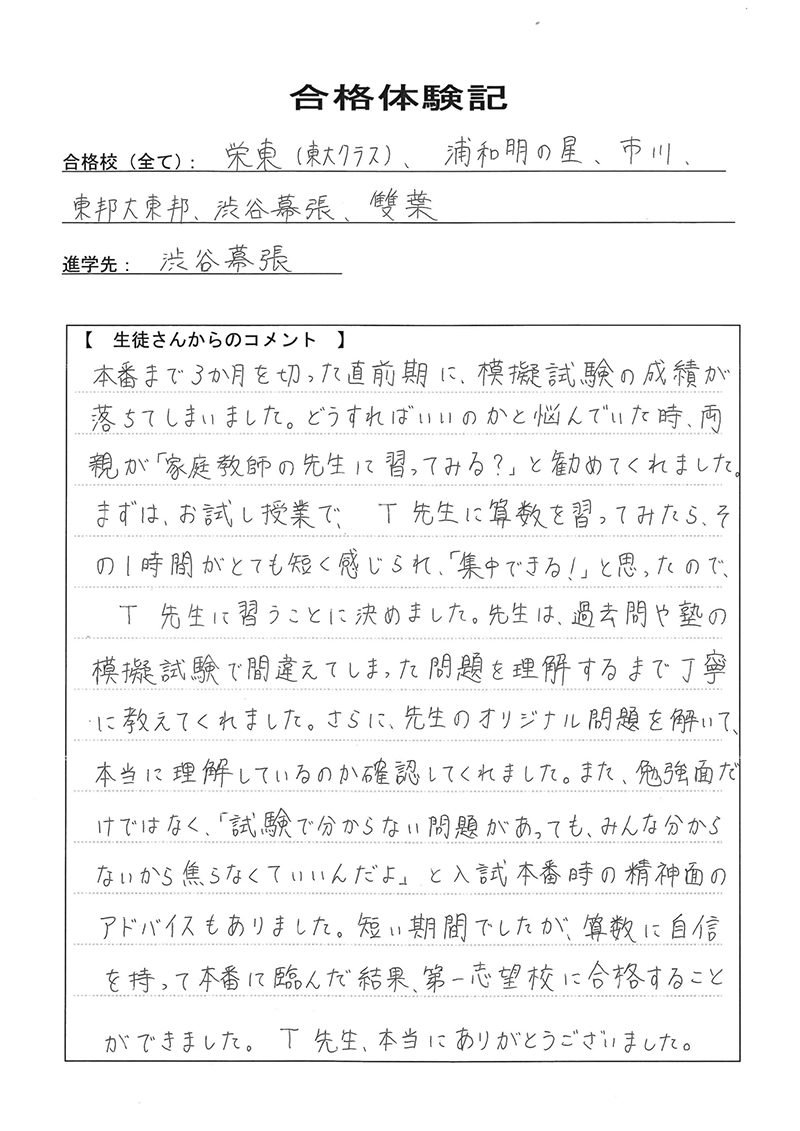 合格体験記
合格校（全て）： 栄東（東大クラス）、 浦和明の星、市川、
東邦大東邦、渋谷幕張、雙葉
進学先： 渋谷幕張
【 生徒さんからのコメント 】
本番まで3か月を切った直前期に、模擬試験の成績が
落ちてしまいました。どうすればいいのかと悩んでいた時、両
親が「家庭教師の先生に習ってみる？」と勧めてくれました。
まずは、お試し授業で、 T 先生に算数を習ってみたら、そ
の1時間がとても短く感じられ、「集中できる！」と思ったので、
T 先生に習うことに決めました。先生は、過去問や塾の
模擬試験で間違えてしまった問題を理解するまで丁寧
に教えてくれました。さらに、先生のオリジナル問題を解いて、
本当に理解しているのか確認してくれました。また、勉強面だ
けではなく、「試験で分からない問題があっても、みんな分から
ないから焦らなくていいんだよ」と入試本番時の精神面の
アドバイスもありました。短い期間でしたが、算数に自信
を持って本番に臨んだ結果、第一志望校に合格すること
ができました。 T 先生、本当にありがとうございました。